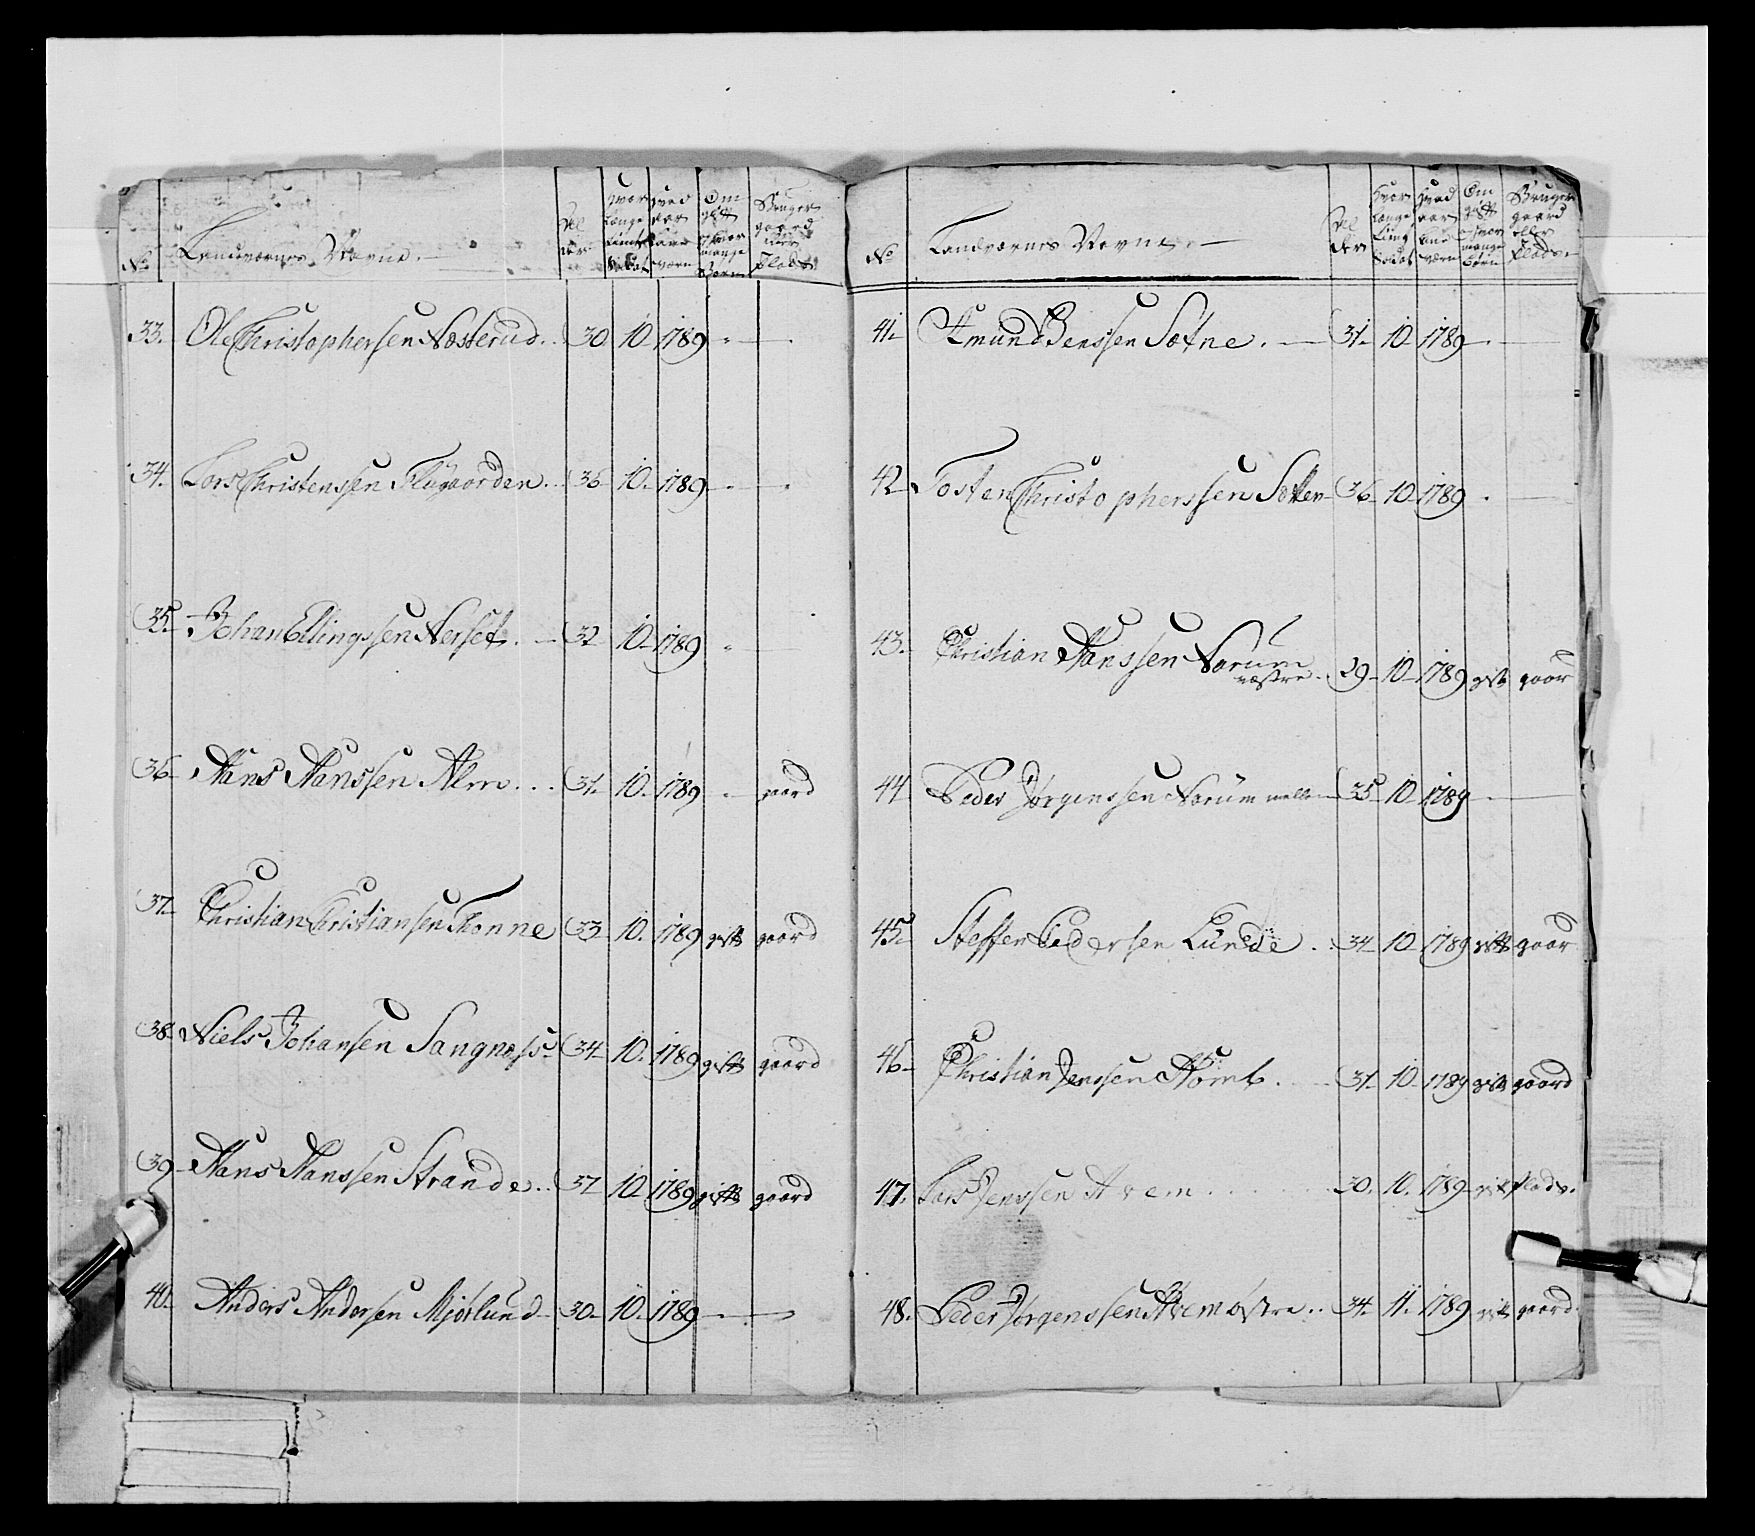 No Landværnes Navne. Alder Hvor længe tient Soldat Hvad aar Land værn Om gift og hvor mange Børn Bruger gaard eller Plads.
33. Ole Christophersen Næsterud. 30 10. 1789
34. Lars Christenssen Flügaarden. 36 10. 1789
35. Johan Ellingssen Nerset. 32 10. 1789
36. Hans Hanssen Alm... 31. 10. 1789 gaard
37. Christian Christiansen Thonne 33 10. 1789 gift gaard
38. Niels Johansen Sangnæss 34 10. 1789 gift gaard
39. Hans Hanssen Strande.. 37 10 1789 gift gaard
40. Anders Andersen Mjørlund 30. 10. 1789
No Landværnes Navne. Alder Hvor længe tient Soldat Hvad aar Land værn Om gift og hvor mange Børn Bruger gaard eller Plads.
41. Amund Benssen Sotne. 31. 10 1789
42 Tosten Christopherssen Sotten 36 10 1789
43. Christian Hanssen Narum
væstre. 29 10 1789 gift gaar
44 Peder Jørgenssen Narüm mellem 35 10 1789
45. Steffen Pedersen Lünde.. 34 10 1789 gift gaar
46 Christian Jenssen Homb. 31. 10 1789 gift gaard
47. Lars Jenssen Hvem..... 30. 10. 1789 gift Plads.
48. Peder Jørgenssen Hvem østre.. 34. 11. 1789 gift gaard.